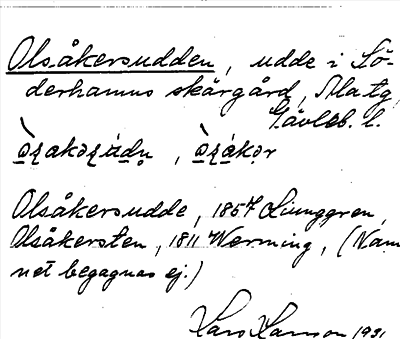 Olsåkersudden, udde i Sö-
derhamns skärgård,
Gävleb. l.
Olsåkersudde, 1857 Ljunggren,
Olsåkersten, 1811 Werming, (Nam
net begagnas ej.)
Lars Hanson 1931